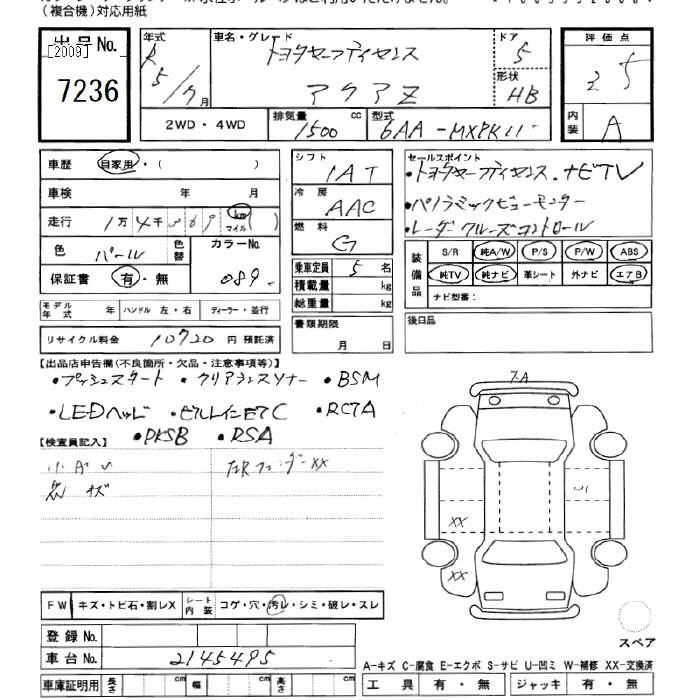 (複合機)対応用紙
出品No.
[2009]
7236
年式 R5/7月
車名・グレード トヨタセーフティセンス
アクアZ
ドア 5
形状 HB
2WD・4WD
排気量 1500 cc
型式 6AA-MXPK11
評価点
内装 A
車歴 自家用・( )
車検 年 月
走行 1万4千 km マイル( )
色 パール 色替 カラーNo. 089
保証書 有・無
シフト IAT
冷房 AAC
燃料 G
乗車定員 5名
積載量 kg
総重量 kg
書類期限 月 日
セールスポイント
・トヨタセーフティセンス.ナビTV
・パノラミックビューモニター
・レーダークルーズコントロール
装備品 S/R 純A/W P/S P/W ABS
純TV 純ナビ 革シート 外ナビ エアB
ナビ型番:
後日品
モデル年式 年 ハンドル 左・右 ディーラー・並行
リサイクル料金 10720 円 預託済
【出品店申告欄(不良箇所・欠品・注意事項等)】
・プッシュスタート ・クリアランスソナー ・BSM
・LEDヘッド ・ビルトインETC ・RCTA
・PKSB ・RSA
【検査員記入】
小
キズ
左Rフェンダーxx
7.A
XX
XX
FW キズ・トビ石・割レX シート内装 コゲ・穴・汚レ・シミ・破レ・スレ
スペア
登録No.
車台No. 2145495
A-キズ C-腐食 E-エクボ S-サビ U-凹ミ W-補修 XX-交換済
車庫証明用 長さ cm 幅 cm 高さ cm
工具 有・無 ジャッキ 有・無